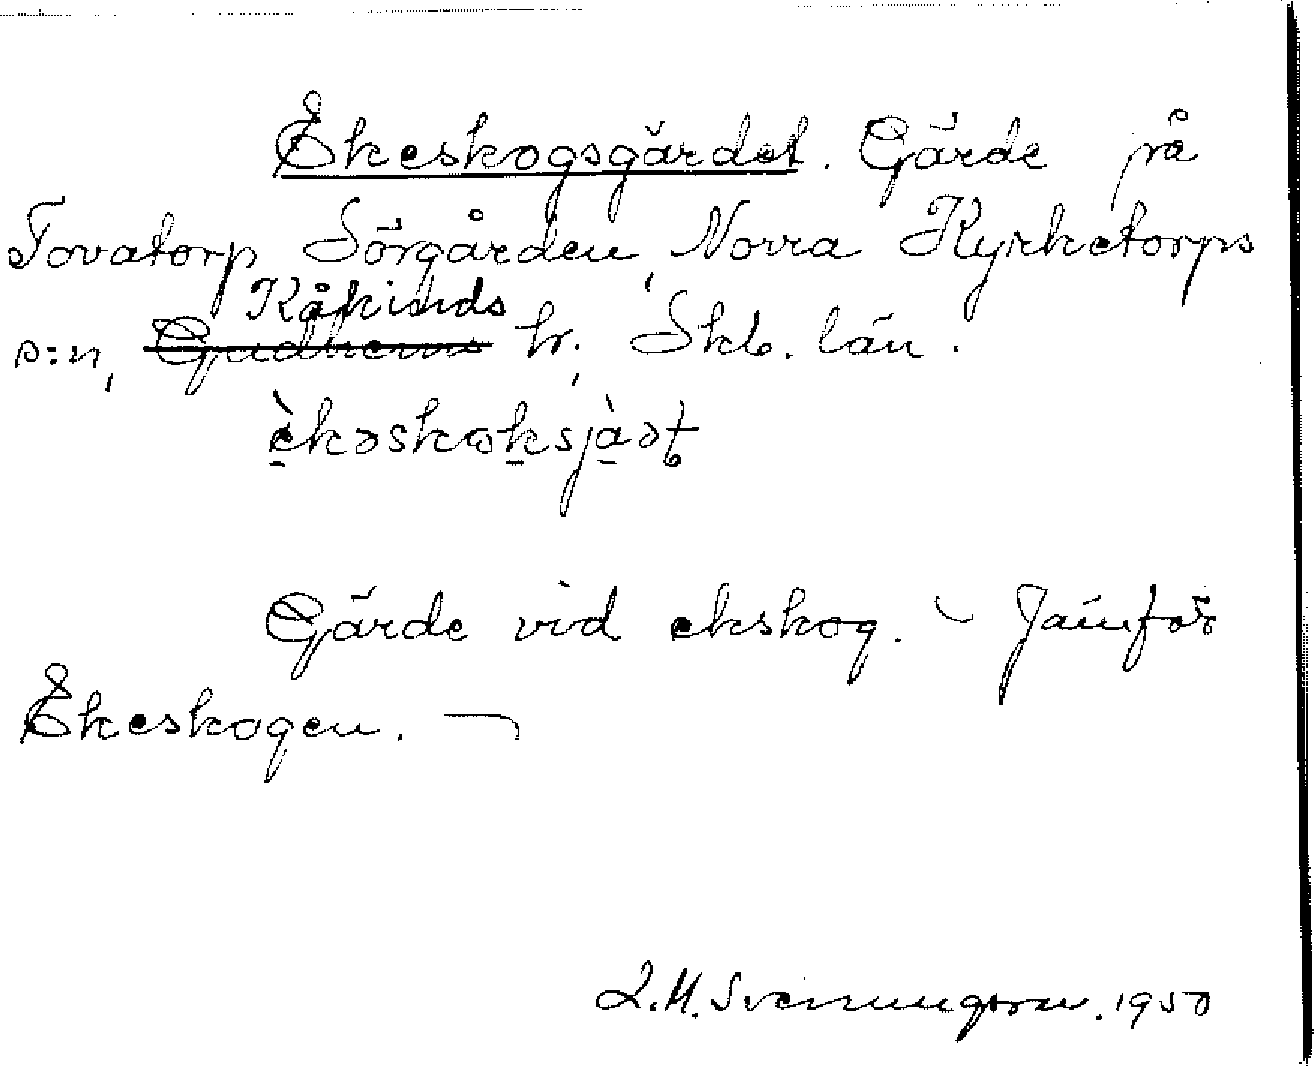 Ekeskogsgärdet. Gärde på
Tovatorp Sörgården, Norra Kyrketorps
Kåkinds
s:n, Gudhems hr. Skb. län.
Gärde vid ekskog. – Jämför
Ekeskogen. –
L.M. Svenungsson. 1950